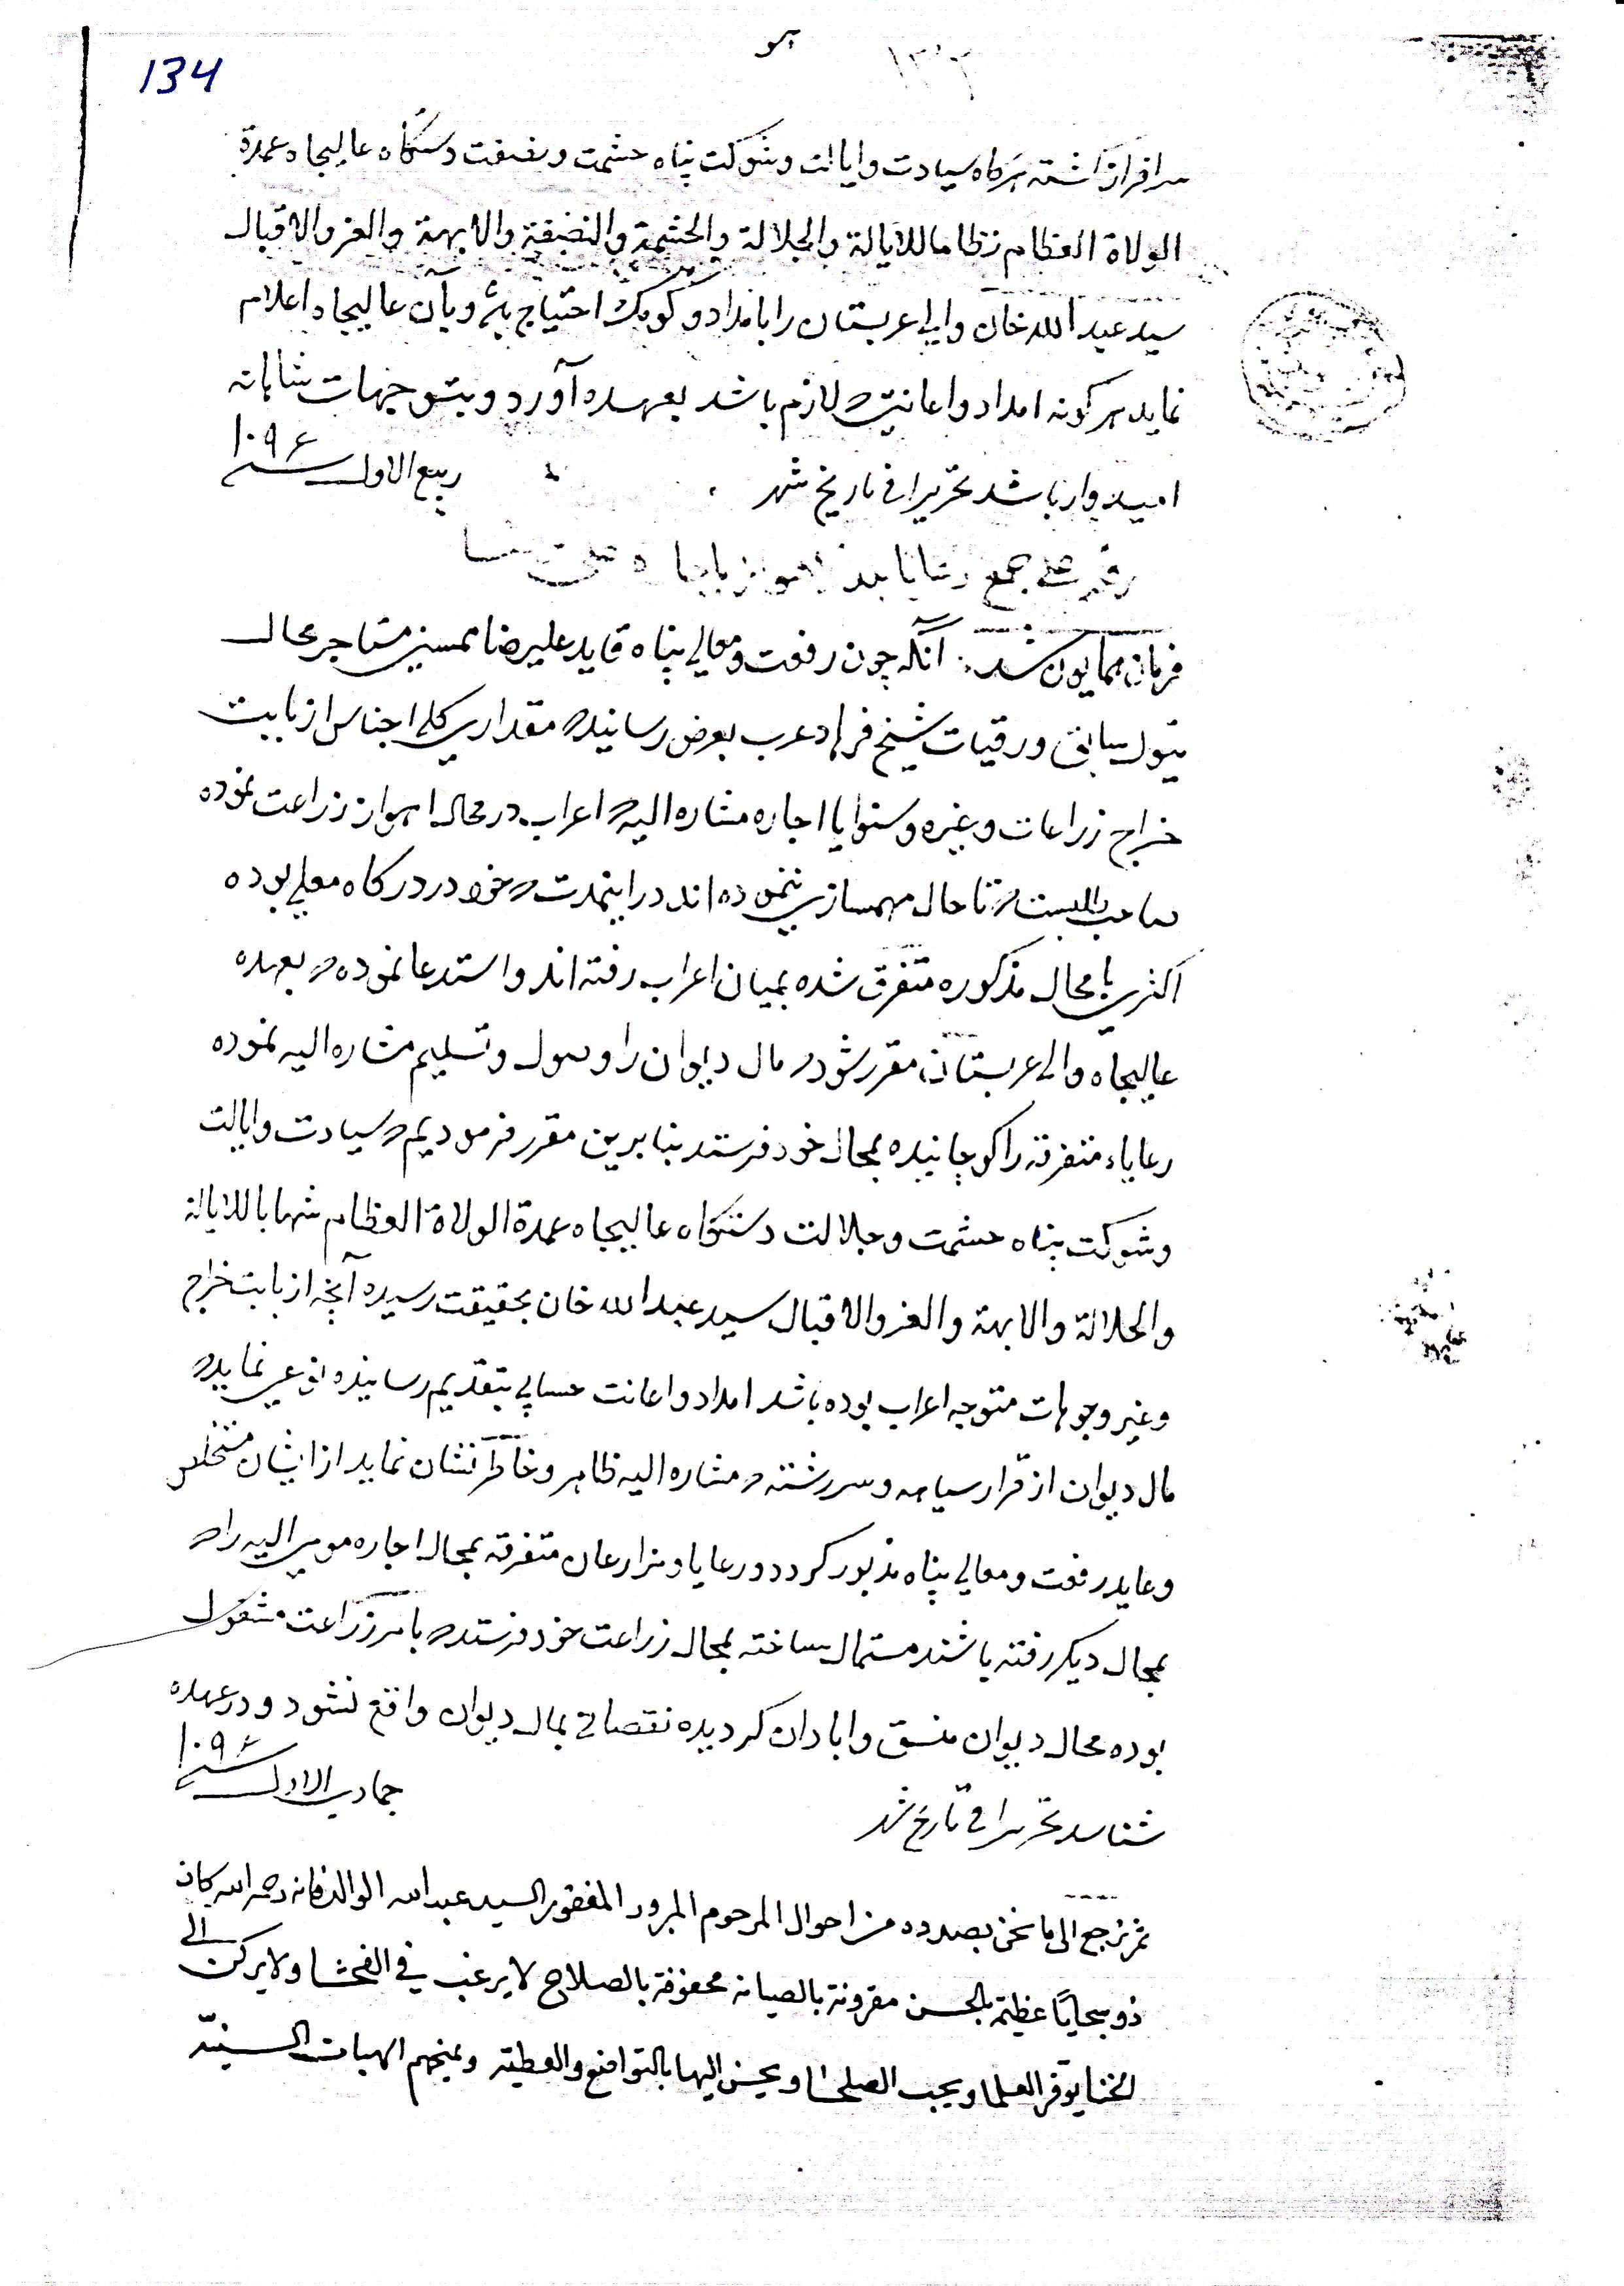 هو
134
۱۳۲
سرافراز داشته هرگاه سیادت وایالت وشوکت پناه حشمت ونصفت دستگاه عالیجاه عمدة
الولاة العظام نظاما للایالة والجلالة والحشمة والنصفة والابهة والعز والاقبال
سید عبدالله خان والی عربستان را بامداد وکومک احتیاج باشد وبآن عالیجاه اعلام
نماید هرگونه امداد واعانیت که لازم باشد بعهده آورد وبتوجهات شاهانه
امیدوار باشد تحریرا فی تاریخ شهر ربیع الاول سنه ۱۰۹۶
رقم جمع رعایا
فرمان همایون شد آنکه چون رفعت ومعالی پناه قاید علیرضا مستاجر محال
تیول سابق ورقبات شیخ فرهاد عرب بعرض رسانید که مقداری کلی اجناس از بابت
خراج زراعات وغیره وسنوایا اجاره مشاره الیه که اعراب در محال اهواز زراعت نموده
تا حال مهمسازی ننموده اند در اینمدت که خود در درکاه معلی بوده
اکثری با محال مذکوره متفرق شده بمیان اعراب رفته اند واستدعا نموده که بعهده
عالیجاه والی عربستان مقرر شود که مال دیوان را وصول وتسلیم مشاره الیه نموده
رعایاء متفرقه را کوچانیده بمحال خود فرستد بنابرین مقرر فرمودیم که سیادت وایالت
وشوکت پناه حشمت وجلالت دستگاه عالیجاه عمدة الولاة العظام شهابا للایالة
والجلالة والابهة والعز والاقبال سید عبدالله خان بحقیقت رسیده آنچه از بابت خراج
وغیر وجوهات متوجه اعراب بوده باشد امداد واعانت حسابی بتقدیم رسانیده نوعی نماید که
مال دیوان از قرار سیاهه وسررشته که مشاره الیه ظاهر وخاطر نشان نماید از ایشان مستخلص
وعاید رفعت ومعالی پناه مذبور کردد ورعایا ومزارعان متفرقه بمحال اجاره مومی الیه را که
بمحال دیکر رفته باشند مستمال ساخته بمحال زراعت خود فرستد که بامر زراعت مشغول
بوده محال دیوان منسق وابادان کردیده نقصانی بمال دیوان واقع نشود ودر عهده
شناسد تحریرا فی تاریخ شهر جمادی الاول سنه ۱۰۹۶
ثم نرجع الی ما نحن بصدده من احوال المرحوم المبرور المغفور السید عبدالله الوالد فانه رحمه الله کان
ذو سجایا عظیمة بالحسن مقرونة بالصیانه محفوفة بالصلاح لا یرغب فی الفحشا ولا یرکن الی
الخنا یوقر العلما ویحب الصلحا ویحسن الیها بالتواضع والعطیة ویمنحهم الهبات السنیة